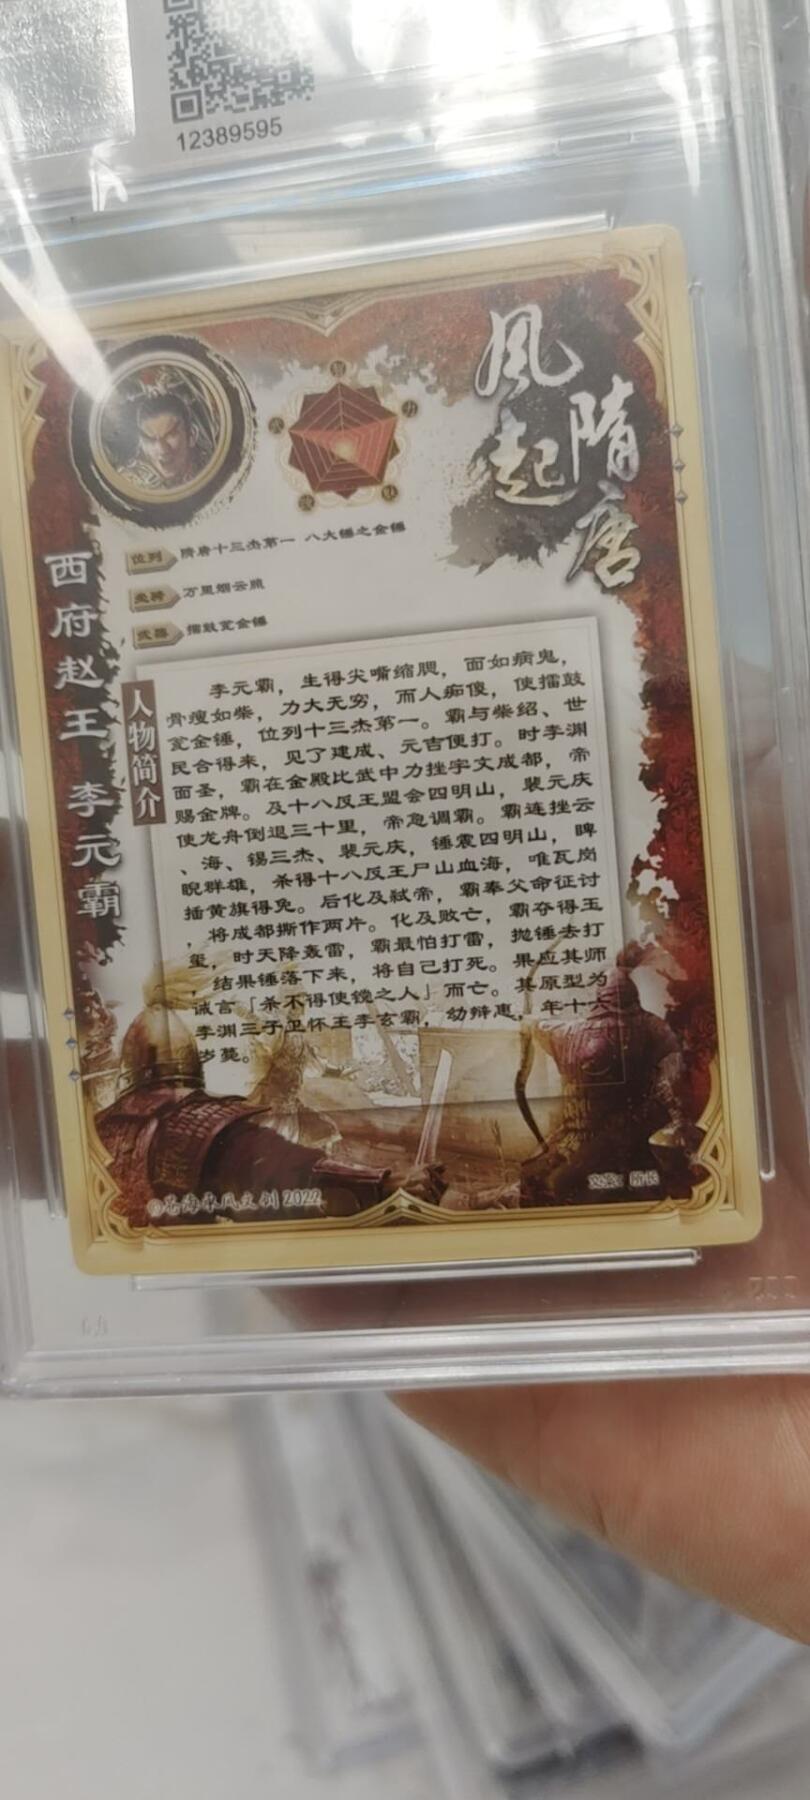 12389595
風起隋唐
位列 隋唐十三杰第一 八大锤之金锤
坐骑 万里烟云照
武器 擂鼓瓮金锤
西府赵王 李元霸
人物简介
李元霸，生得尖嘴缩腮，面如病鬼，
骨瘦如柴，力大无穷，而人痴傻，使擂鼓
瓮金锤，位列十三杰第一。霸与柴绍、世
民合得来，见了建成、元吉便打。时李渊
面圣，霸在金殿比武中力挫宇文成都，帝
赐金牌。及十八反王盟会四明山，裴元庆
使龙舟倒退三十里，帝急调霸。霸连挫云
、海、锡三杰、裴元庆，锤震四明山，睥
睨群雄，杀得十八反王尸山血海，唯瓦岗
插黄旗得免。后化及弑帝，霸奉父命征讨
，将成都撕作两片。化及败亡，霸夺得玉
玺，时天降轰雷，霸最怕打雷，抛锤去打
，结果锤落下来，将自己打死。果应其师
诫言「杀不得使镋之人」而亡。其原型为
李渊三子卫怀王李玄霸，幼辩惠，年十六
岁薨。
©沧海承风文创 2022